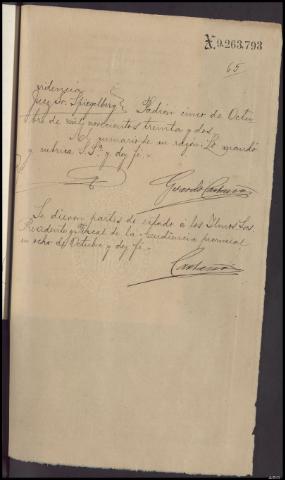 X.9.263,793
65
videncia
Juez Sr. Spiegelberg Padron cinco de Octu-
bre de mil novecientos treinta y dos.
Al sumario de su razon: Lo mandó
y rubrica S. Sª. y doy fé.-
Gerardo
Se dieron partes de estado á los Ilmos. Sres.
Presidente y Fiscal de la Audiencia provincial
en ocho de Octubre y doy fé.-